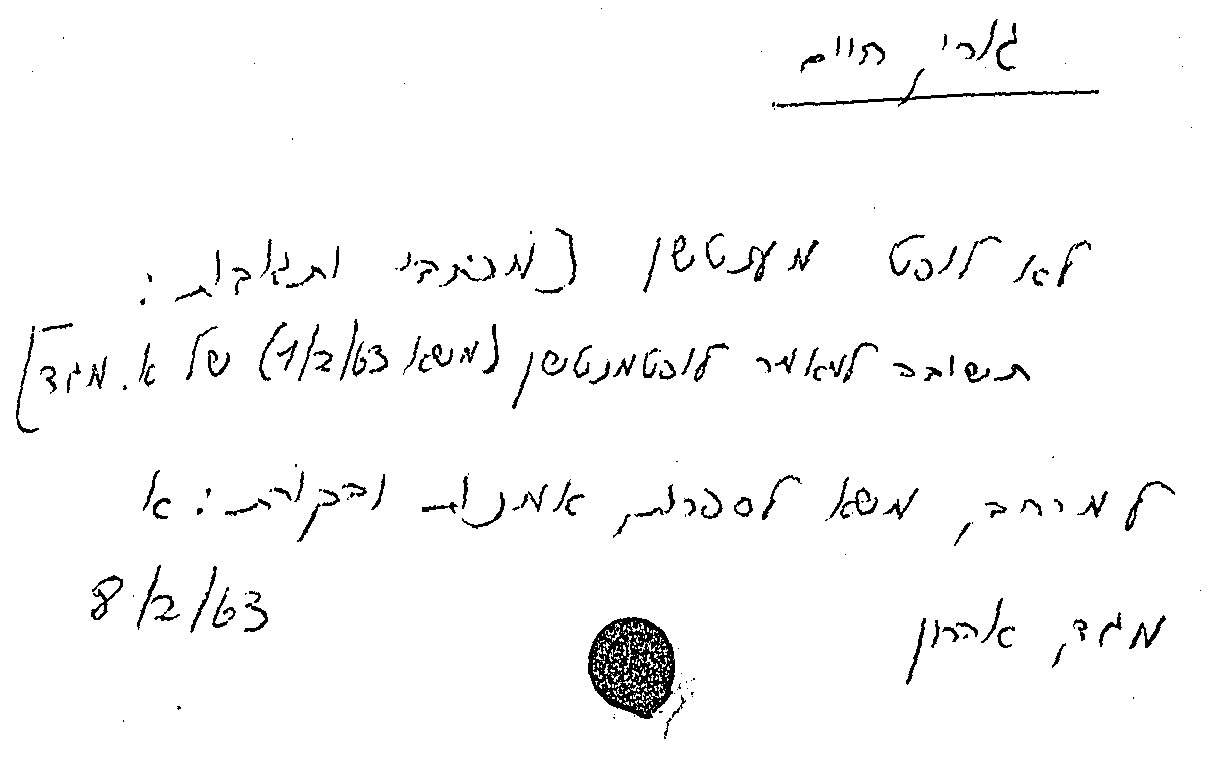 גארי, חיים
לא לופט מענטשן [מכתבי ותגובות :
תשובה למאמר לופטמנטשן (משא 1/2/63) של א. מגד]
למרחב, משא לספרות, אמנות ובקורת : א
8/2/63
מגד, אהרון